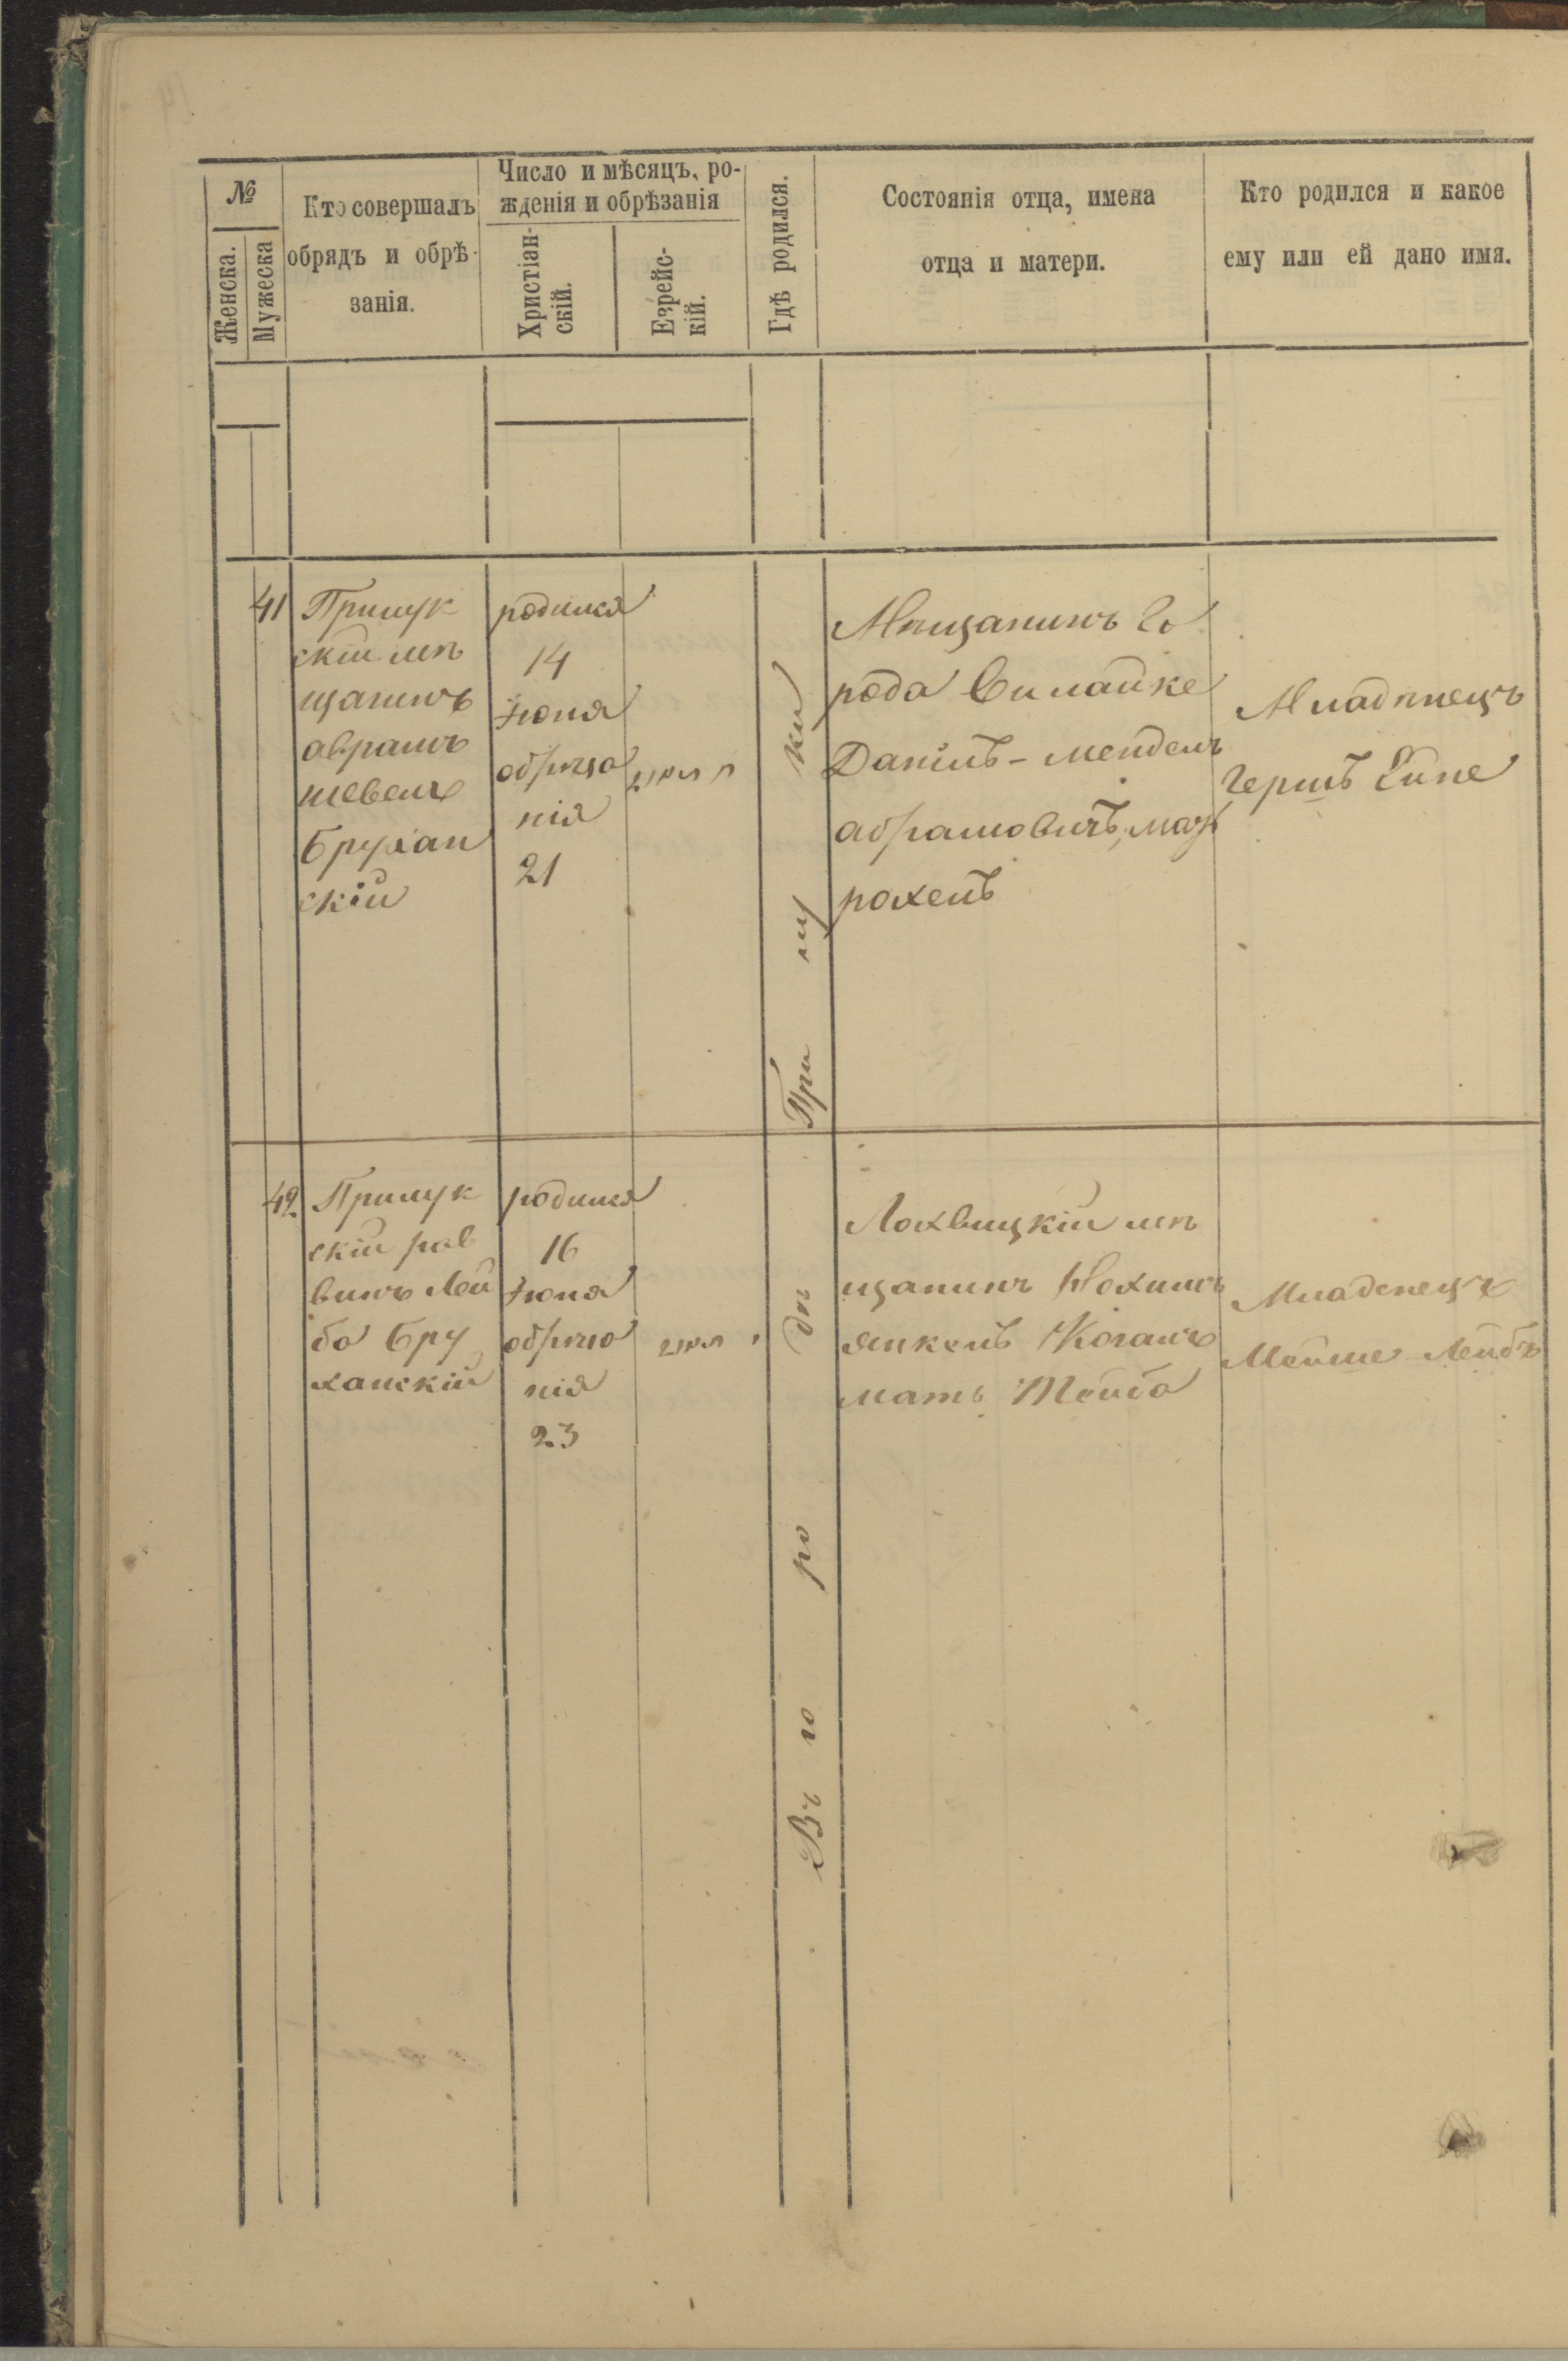 №
Женска.
Мужеска
Кто совершалъ
обрядъ и обрѣ-
занія.
Число и мѣсяцъ, ро-
жденія и обрѣзанія
Христіан-
скій.
Езрейс-
кій.
Гдѣ родился.
Состоянія отца, имена
отца и матери.
Кто родился и какое
ему или ей дано имя.
41
Прилук
скій мѣ
щанинъ
аврамъ
шевель
Брухан
скій
родился
14
Июня
обрѣза
нія
21
Мѣщанинъ Го
рода Вилайке
Даніилъ-мендель
абрамовичъ, мат
рохель
Младѣнецъ
Гершъ
42
Прилук
скій рав
винъ Лей
ба Бру
ханскій
родился
16
Июня
обрѣза
нія
23
Лохвицкій мѣ
щанинъ Нохимъ
янкель Коганъ
мать Тойба
Младенецъ
Мойше Лейбъ
Въ го ро дѣ При лу ки